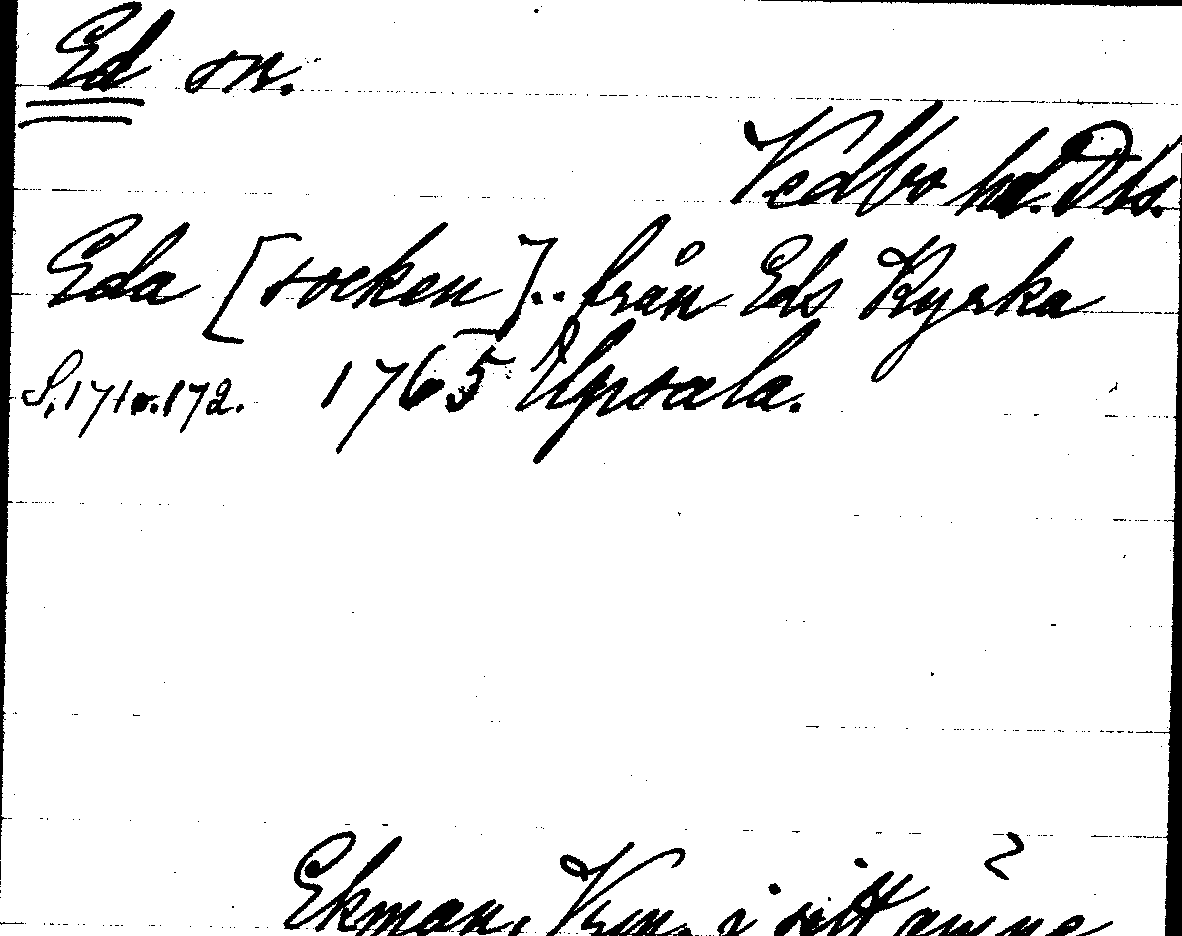 Ed sn.
Vedbo hd. Dls.
Eda [socken].. från Eds Kyrka
S. 171 o. 172. 1765 Upsala.
Ekman, Vrm. i sitt ämne 2